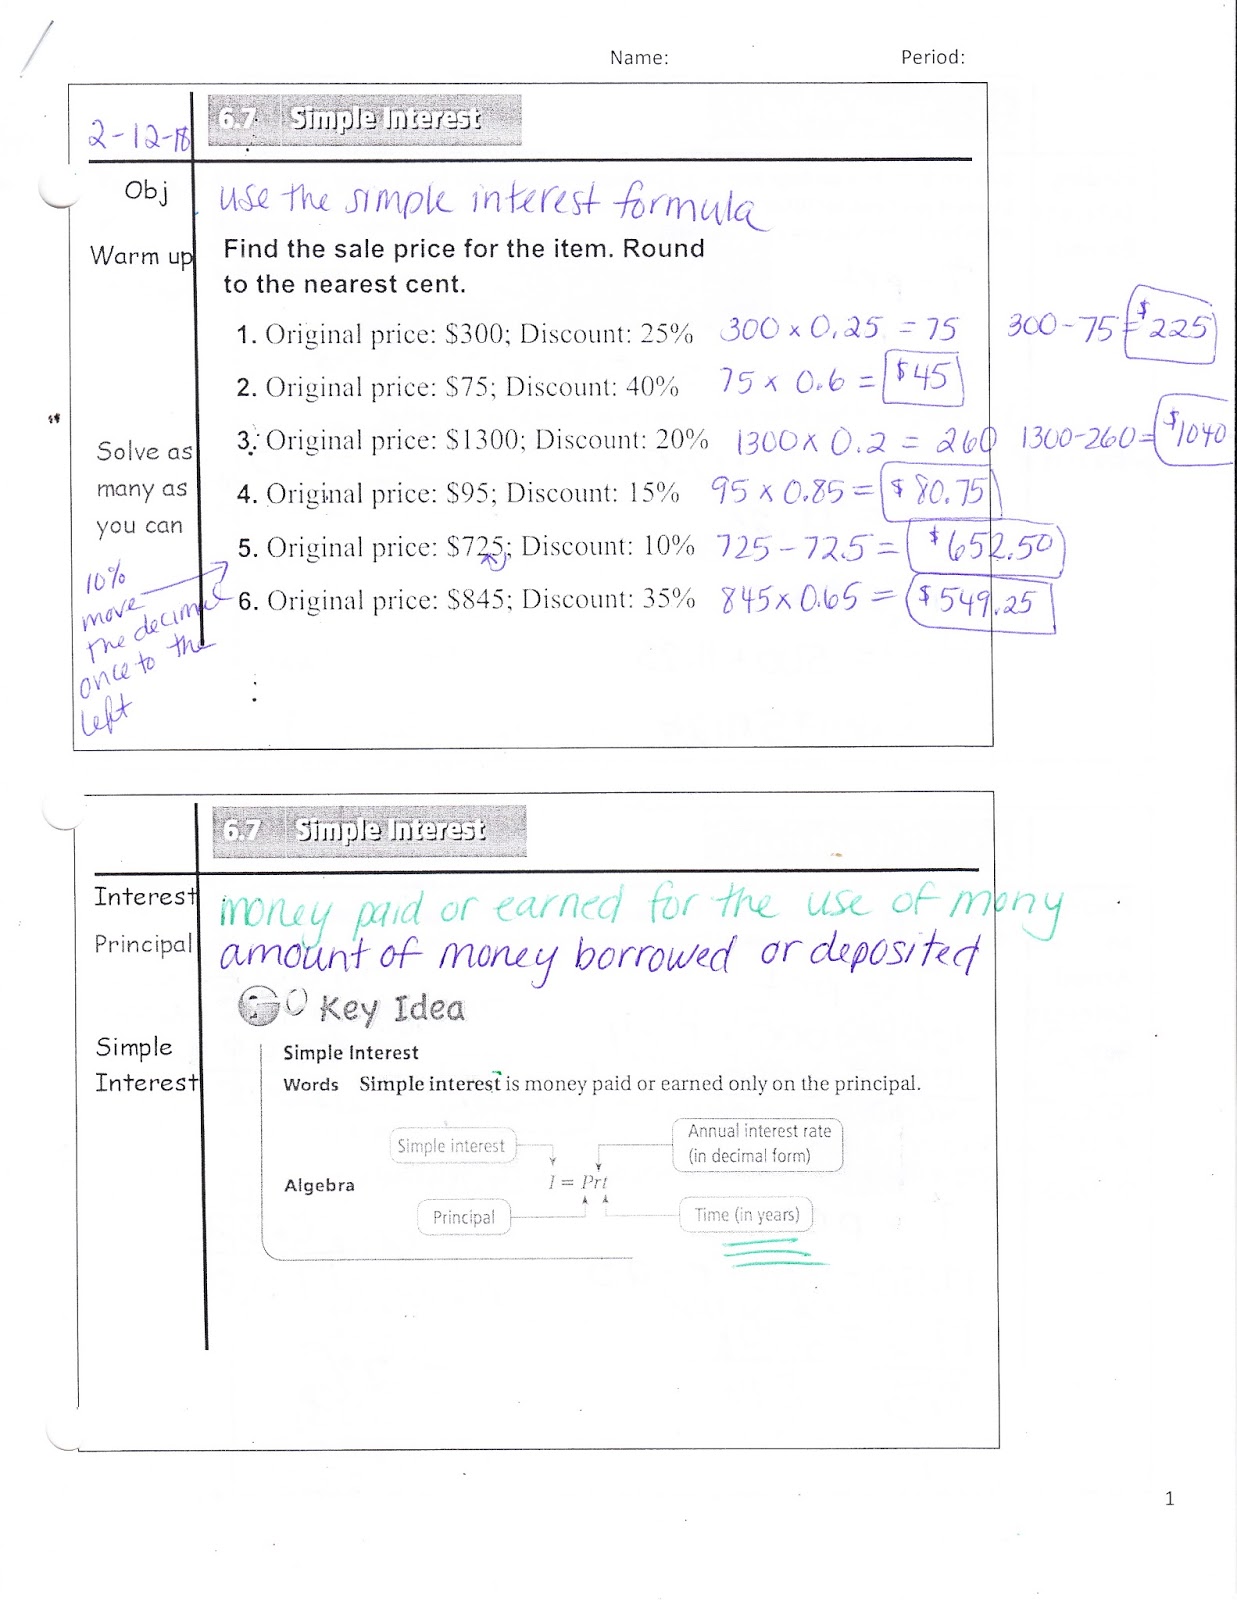 Name: Period:
2-12-18 6.7 Simple Interest
Obj use the simple interest formula
Warm up Find the sale price for the item. Round
to the nearest cent.
1. Original price: $300; Discount: 25% 300 x 0.25 = 75 300-75 = $225
2. Original price: $75; Discount: 40% 75 x 0.6 = $45
3. Original price: $1300; Discount: 20% 1300 x 0.2 = 260 1300-260= $1040
Solve as
many as
you can
4. Original price: $95; Discount: 15% 95 x 0.85 = $80.75
5. Original price: $725; Discount: 10% 725 - 72.5 = $652.50
6. Original price: $845; Discount: 35% 845 x 0.65 = $549.25
10%
move
the decimal
once to the
left
6.7 Simple Interest
Interest money paid or earned for the use of mony
Principal amount of money borrowed or deposited
Key Idea
Simple
Interest
Simple Interest
Words Simple interest is money paid or earned only on the principal.
Simple interest
Annual interest rate
(in decimal form)
Algebra I = Prt
Principal
Time (in years)
1